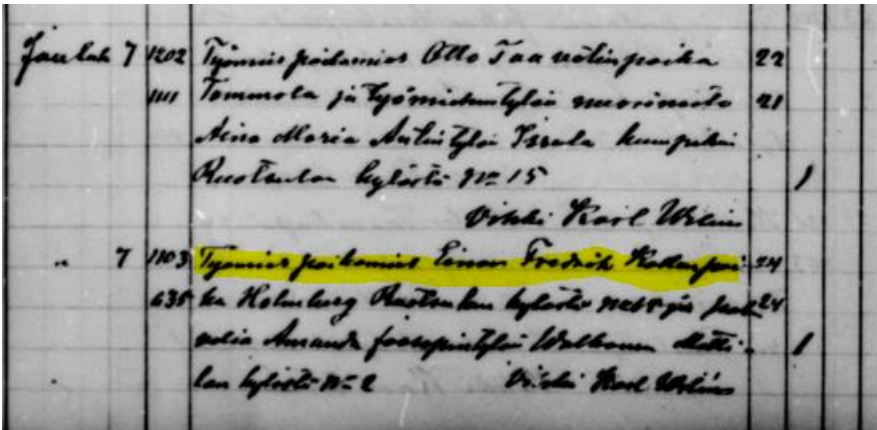 Jouluk 7 1202 Työmies poikamies Otto Taavetinpoika 22
1111 Tommola ja työmiehentytär nuorineito 21
Aina Maria Antintytär Issala kumpikin
Ruotsulan kylästä No 15 1
Vihki Karl Welin
" 7 1103 Työmies poikamies Einar Fredrik Kallenpoi- 34
635 ka Holmberg Ruotsulan kylästä ja 24
Amanda Joosepintytär Walkonen Matti- 1
lan kylästä No 2 Vihki Karl Welin